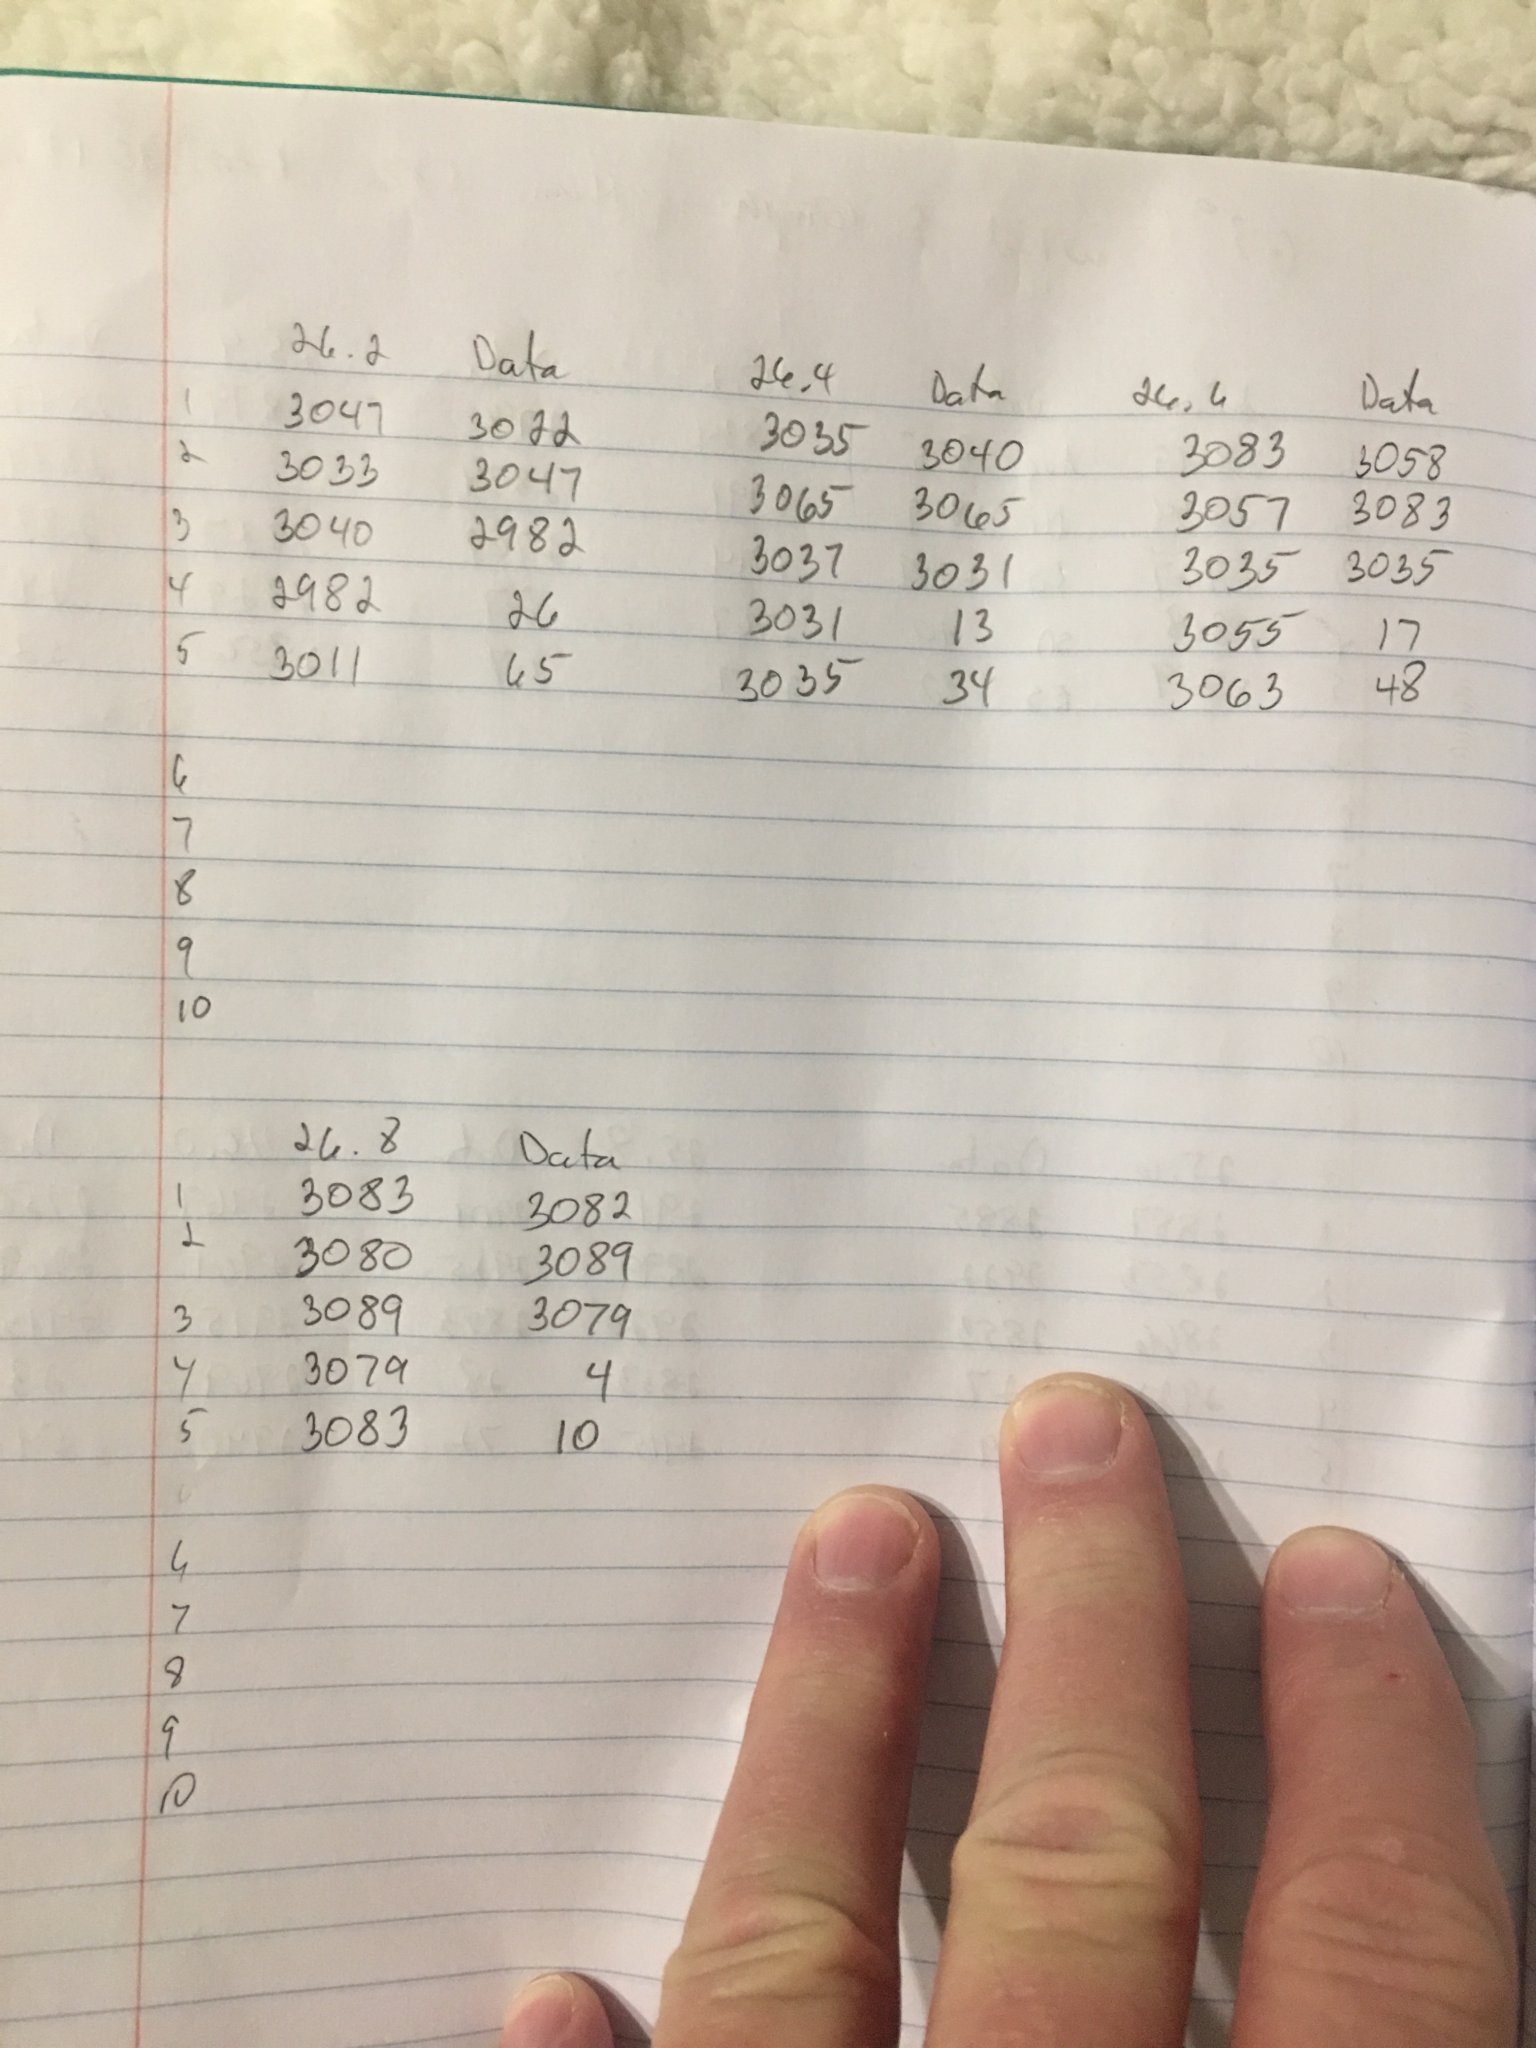 26.2 Data 26.4 Data 26.6 Data
1 3047 3022 3035 3040 3083 3058
2 3033 3047 3065 3065 3057 3083
3 3040 2982 3037 3031 3035 3035
4 2982 26 3031 13 3055 17
5 3011 65 3035 34 3063 48
6
7
8
9
10
26.8 Data
1 3083 3082
2 3080 3089
3 3089 3079
4 3079 4
5 3083 10
6
7
8
9
10